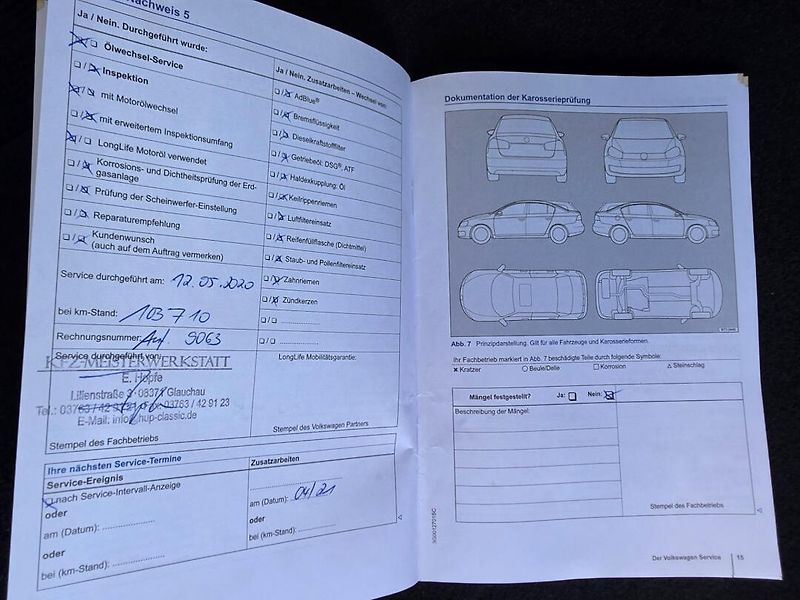 Nachweis 5
Ja / Nein. Durchgeführt wurde:
Ölwechsel-Service
Inspektion
mit Motorölwechsel
mit erweitertem Inspektionsumfang
LongLife Motoröl verwendet
Korrosions- und Dichtheitsprüfung der Erd-
gasanlage
Prüfung der Scheinwerfer-Einstellung
Reparaturempfehlung
Kundenwunsch
(auch auf dem Auftrag vermerken)
Service durchgeführt am: 12.05.2020
bei km-Stand: 103710
Rechnungsnummer: Auf. 9063
Service durchgeführt von:
KFZ-MEISTERWERKSTATT
E. Hopfe
Lilienstraße 3 · 08371 Glauchau
Tel.: 03763 / 42 9 03763 / 42 91 23
E-Mail: info@hup-classic.de
Stempel des Fachbetriebs
Ja / Nein. Zusatzarbeiten – Wechsel von:
AdBlue®
Bremsflüssigkeit
Dieselkraftstofffilter
Getriebeöl: DSG®, ATF
Haldexkupplung: Öl
Keilrippenriemen
Luftfiltereinsatz
Reifenfüllflasche (Dichtmittel)
Staub- und Pollenfiltereinsatz
Zahnriemen
Zündkerzen
LongLife Mobilitätsgarantie:
Stempel des Volkswagen Partners
Ihre nächsten Service-Termine
Service-Ereignis
nach Service-Intervall-Anzeige
oder
am (Datum):
oder
bei (km-Stand):
Zusatzarbeiten
am (Datum): 04/21
oder
bei (km-Stand):
Dokumentation der Karosserieprüfung
Abb. 7 Prinzipdarstellung. Gilt für alle Fahrzeuge und Karosserieformen.
Ihr Fachbetrieb markiert in Abb. 7 beschädigte Teile durch folgende Symbole:
Kratzer Beule/Delle Korrosion Steinschlag
Mängel festgestellt? Ja: Nein:
Beschreibung der Mängel:
Stempel des Fachbetriebs
Der Volkswagen Service 15